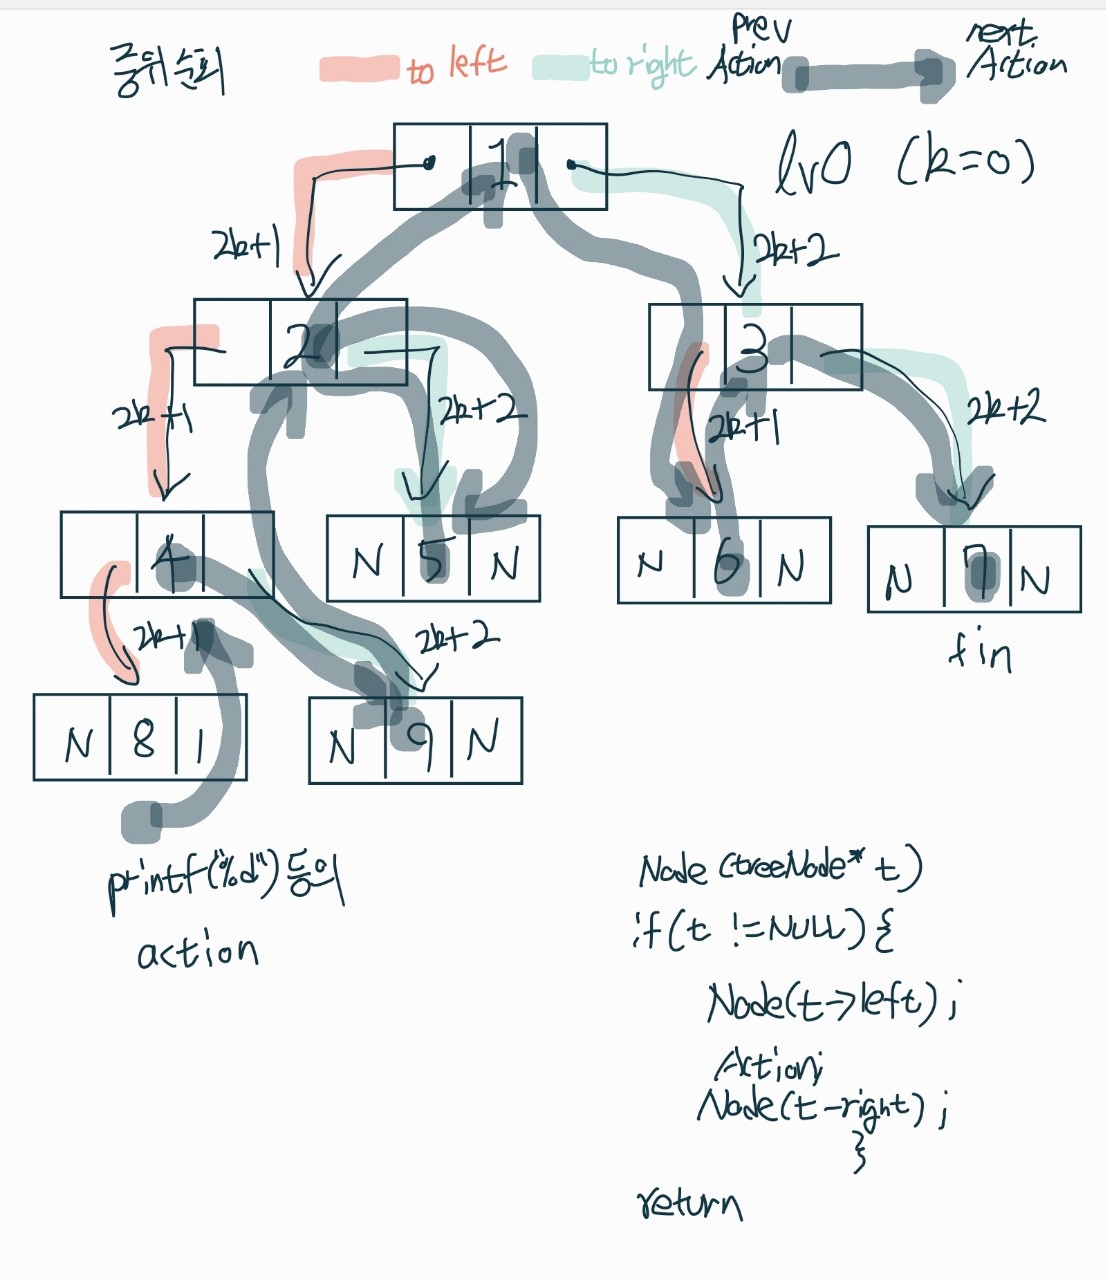 중위순회 to left to right prev Action next Action
1 lv0 (k=0)
2k+1 2k+2
2 3
2k+1 2k+2 2k+1 2k+2
4 N 5 N N 6 N N 7 N
2k+1 2k+2 fin
N 8 1 N 9 N
printf("%d") 등의
action
Node (treeNode* t)
if(t !=NULL){
Node(t->left);
Action;
Node(t-right);
}
return